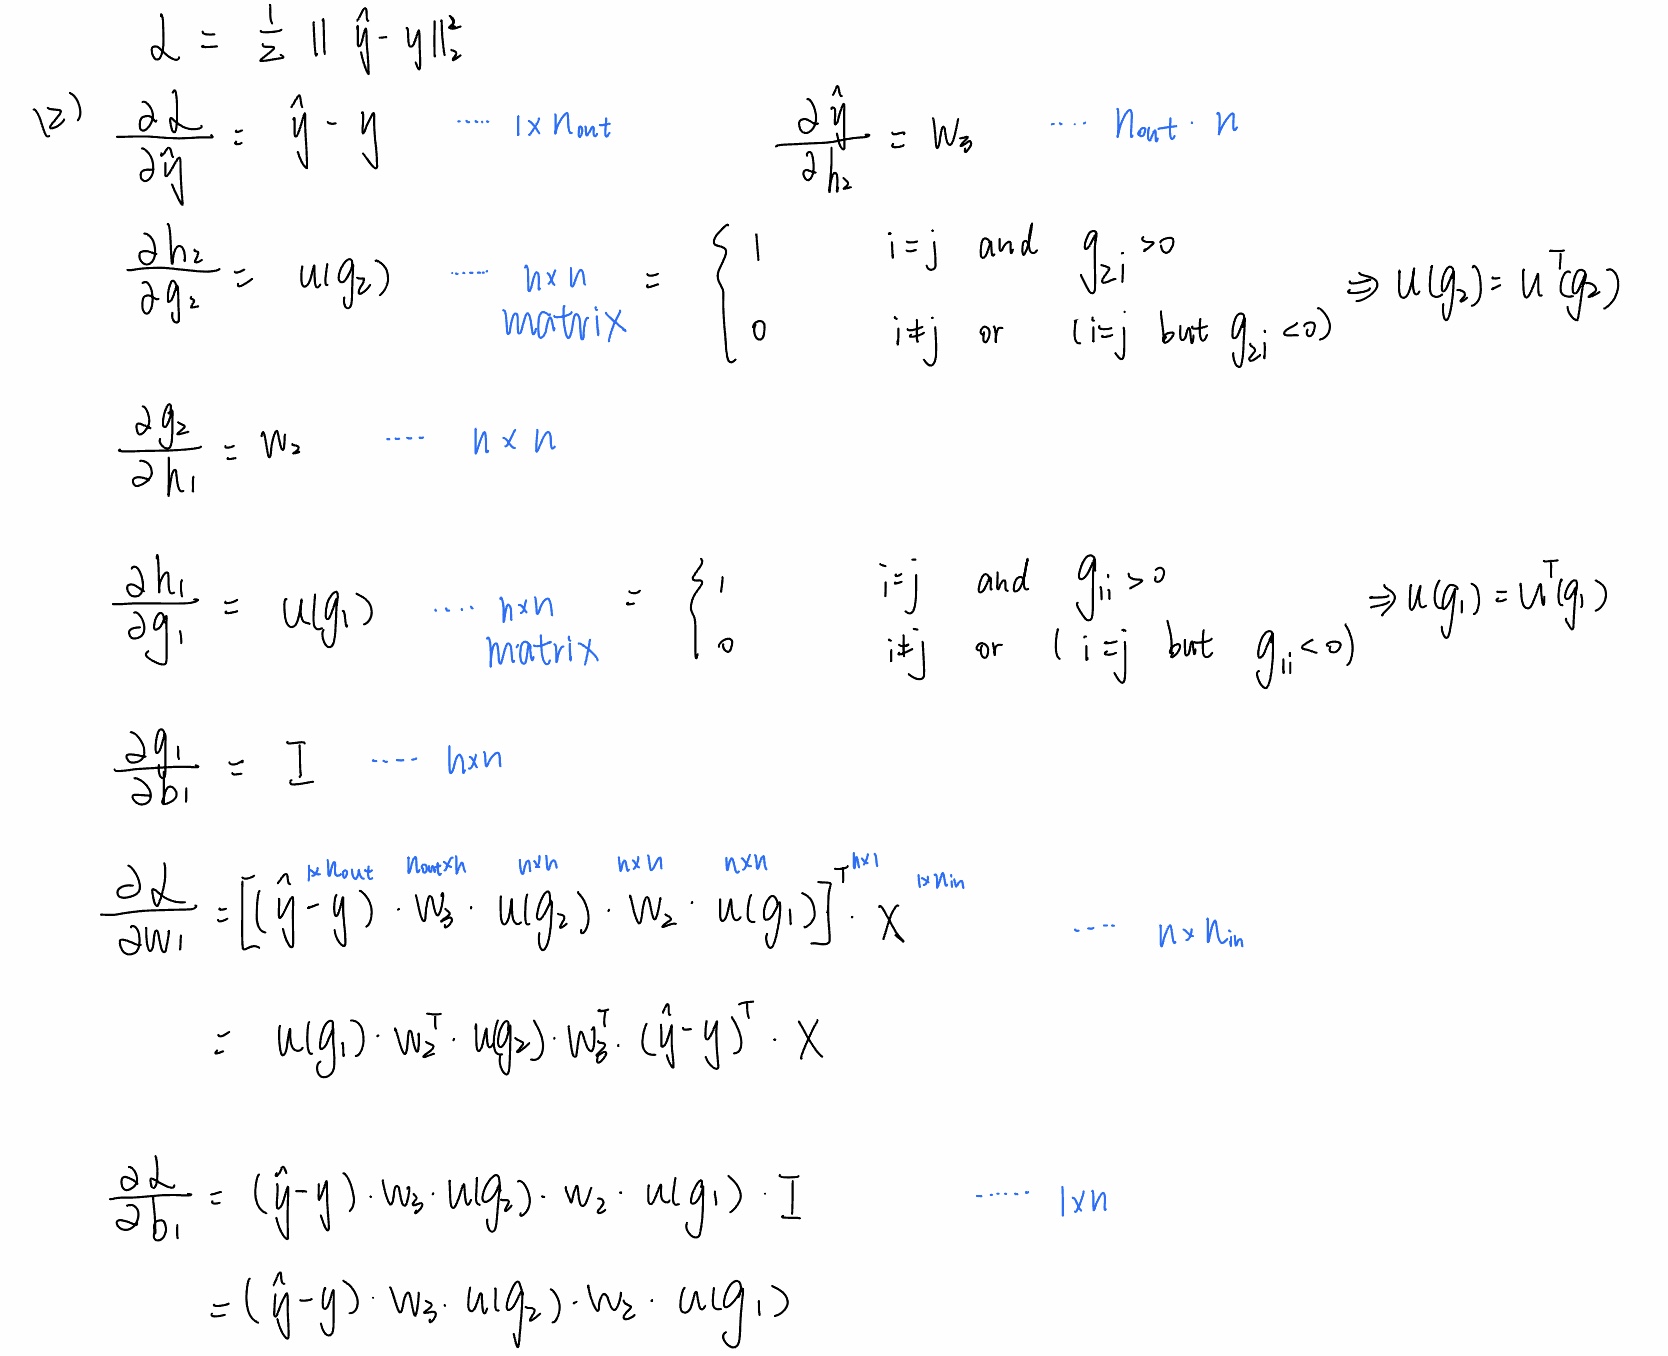 L = 1/2 || ŷ - y ||₂²
(2) ∂L/∂ŷ = ŷ - y ····· 1 × n_out ∂ŷ/∂h₂ = W₃ ···· n_out · n
∂h₂/∂g₂ = u(g₂) ····· n × n matrix = { 1 i = j and g₂ᵢ > 0
0 i ≠ j or (i = j but g₂ᵢ < 0) ⇒ u(g₂) = uᵀ(g₂)
∂g₂/∂h₁ = W₂ ···· n × n
∂h₁/∂g₁ = u(g₁) ···· n × n matrix = { 1 i = j and g₁ᵢ > 0
0 i ≠ j or (i = j but g₁ᵢ < 0) ⇒ u(g₁) = uᵀ(g₁)
∂g₁/∂b₁ = I ···· n × n
1 × n_out n_out × n n × n n × n n × n n × 1 1 × n_in
∂L/∂W₁ = [(ŷ - y) · W₃ · u(g₂) · W₂ · u(g₁)]ᵀ · X ···· n × n_in
= u(g₁) · W₂ᵀ · u(g₂) · W₃ᵀ · (ŷ - y)ᵀ · X
∂L/∂b₁ = (ŷ - y) · W₃ · u(g₂) · W₂ · u(g₁) · I ······ 1 × n
= (ŷ - y) · W₃ · u(g₂) · W₂ · u(g₁)